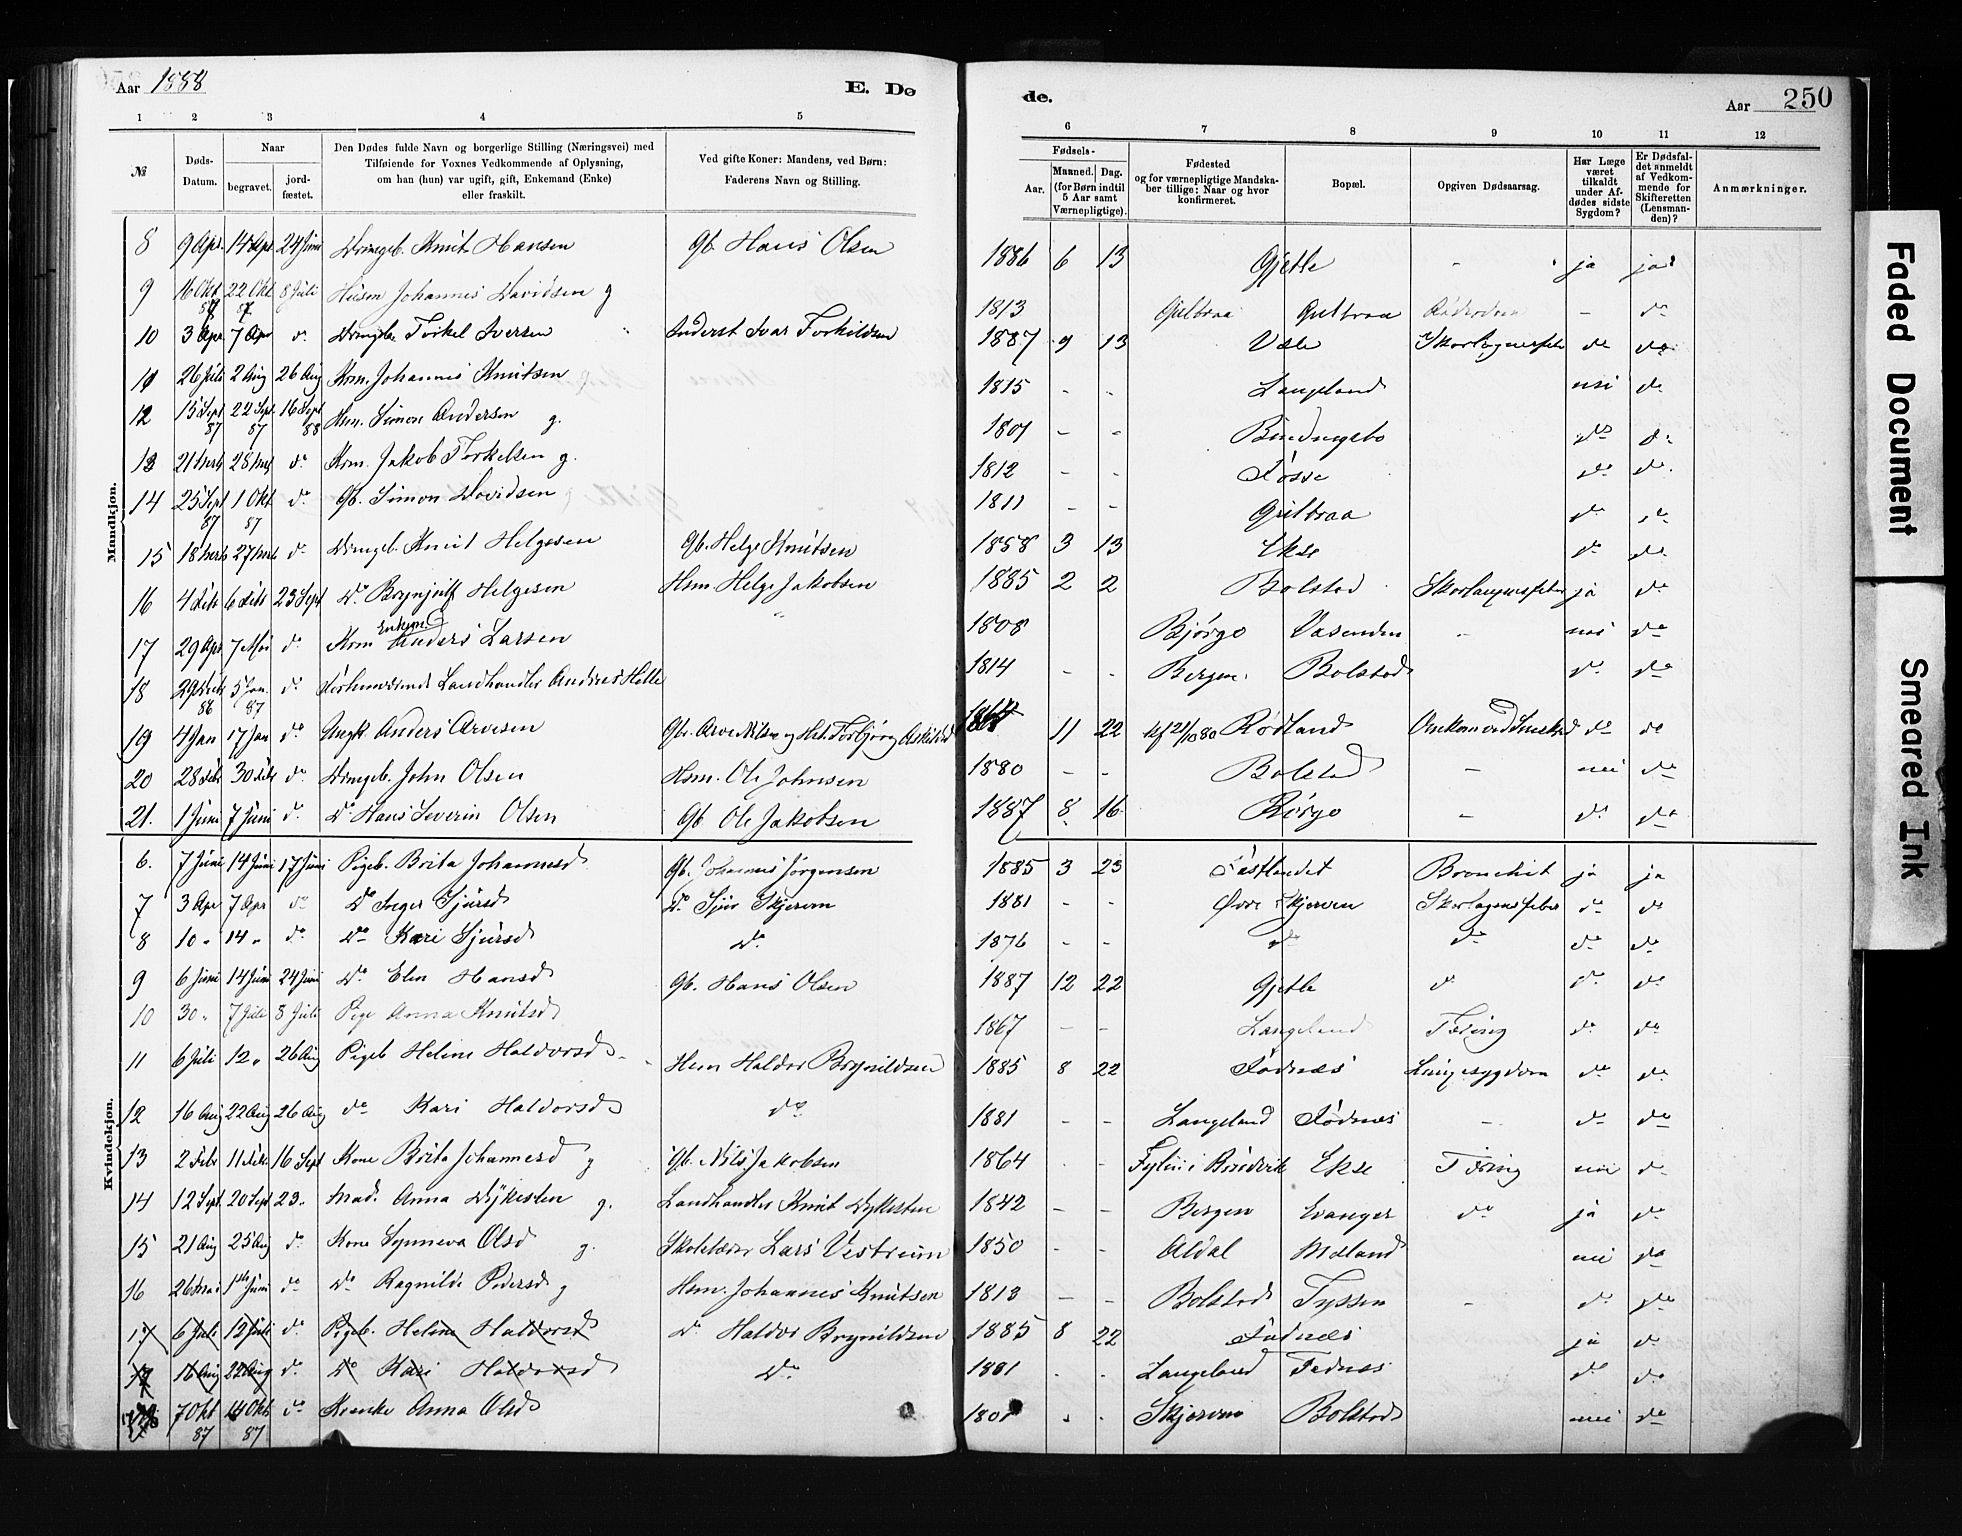 Aar 1888
E. Dø
de.
Aar 250
1 2 3 4 5 6 7 8 9 10 11 12
№
Døds-Datum.
Naar
begravet.
jord-fæstet.
Den Dødes fulde Navn og borgerlige Stilling (Næringsvei) med
Tilføiende for Voxnes Vedkommende af Oplysning,
om han (hun) var ugift, gift, Enkemand (Enke)
eller fraskilt.
Ved gifte Koner: Mandens, ved Børn:
Faderens Navn og Stilling.
Fødsels-
Aar.
Maaned. Dag.
(for Børn indtil
5 Aar samt
Værnepligtige).
Fødested
og for værnepligtige Mandska-
ber tillige: Naar og hvor
konfirmeret.
Bopæl.
Opgiven Dødsaarsag.
Har Læge
været
tilkaldt
under Af-
dødes sidste
Sygdom?
Er Dødsfal-
det anmeldt
af Vedkom-
mende for
Skifteretten
(Lensman-
den)?
Anmærkninger.
Mandkjøn.
8 9 Apr. 14 Apr 24 Juni Drengeb. Knut Hansen Gb. Hans Olsen 1886 6 13 Gjetle - ja ja
9 16 Okt 87 22 Okt 87 8 Juli Husm Johannes Davidsen g 1813 - do
10 3 Apr 7 Apr do Torkel Iversen Inderst Ivar Torkildsen 1887 9 13 do do
11 26 Juli 2 Aug 26 Aug Krm. Johannes Knutsen 1815 - - Langeland nei do
12 15 Sept 87 22 Sept 87 16 Sept 88 Hsm. Simon Andersen g. - - do do
13 do Krm. Jakob Torkelsen g. 1812 - - Fosse do do
14 25 Sept 87 1 Okt 87 do Gb. Simon Davidsen 1811 - - do do
15 do Drengeb. Knut Helgesen Gb. Helge Knutsen 1858 3 13 Ekse do do
16 4 Febr 6 Febr 23 Sept do Brynjulf Helgesen Hsm. Helge Jakobsen 1885 2 2 Bolstad Skarlagensfeber ja do
17 29 Apr 7 Mai do Krm Enkem. Anders Larsen 1808 Bjørgo Vasenden - nei do
18 86 5 Jan. 87 do Landhandler Andreas Helle 1814 - - Bergen. Bolstad do do
19 4 Jan 17 Jan do Ungk. Anders Arvesen 11 22 Rødland do do
20 28 Febr 30 Febr do Drengeb. John Olsen Hsm. Ole Johnsen 1880 - - Bolstad - nei do
21. 1 Juni 7 Juni do do Hans Severin Olsen Gb. Ole Jakobsen 1887 8 16 - do do
Kvindekjøn.
6. 7 Juni 14 Juni 17 Juni Pigeb. Brita Johannesd Gb. Johannes Jørgensen 1885 3 23 Bronchit ja ja
7 3 Apr 7 Apr do do Inger Sjursd do Sjur Skjerven 1881 - - Øvre Skjerven Skarlagensfeber do do
8 10 " 14 " do do Kari Sjursd do 1876 - - do do do do
9 6 Juni 14 Juni 24 Juni do Elen Hansd Gb. Hans Olsen 1887 12 22 Gjetle do do do
10 30 " 7 Juli 8 Juli Pige Anna Knutsd 1867 - - Langeland Tæring do do
11 6 Juli 12 " 26 Aug Pigeb Heline Haldorsd Hsm Haldor Brynildsen 1885 8 22 Fodnæs Lungesygdom do do
12 16 Aug 22 Aug 26 Aug do Kari Haldorsd do 1881 - - Langeland Fodnæs - do do
13 2 Febr 11 Febr 16 Sept Kone Brita Johannesd g Gb. Nils Jakobsen 1864 - - Ekse Tæring nei do
14 12 Sept. 20 Sept 23. Mad. Anna Dykesten g. Landhandler Knut Dykesten 1842 - - Bergen Evanger do ja do
15 21 Aug 25 Aug do Kone Synneva Olsd g. Skolelærer Lars Vestrum 1850 - - Aldal Mæland nei do
16 26 Mai 1ste Juni do do Ragnilde Pedersd g Hsm. Johannes Knutsen 1813 - - Bolstad Tyssen - do do
17 6 Juli 12 Juli do Pigeb. Heline Haldorsd do Haldor Brynildsen 1885 8 22 Fodnæs ja do
16 Aug 22 Aug do do Kari Haldorsd do 1881 - - Langeland Fodnæs do do
7 Okt 87 14 Okt 87 do Anna Olsd 1801 Skjerven Bolstad nei do
Faded Document
Smeared Ink